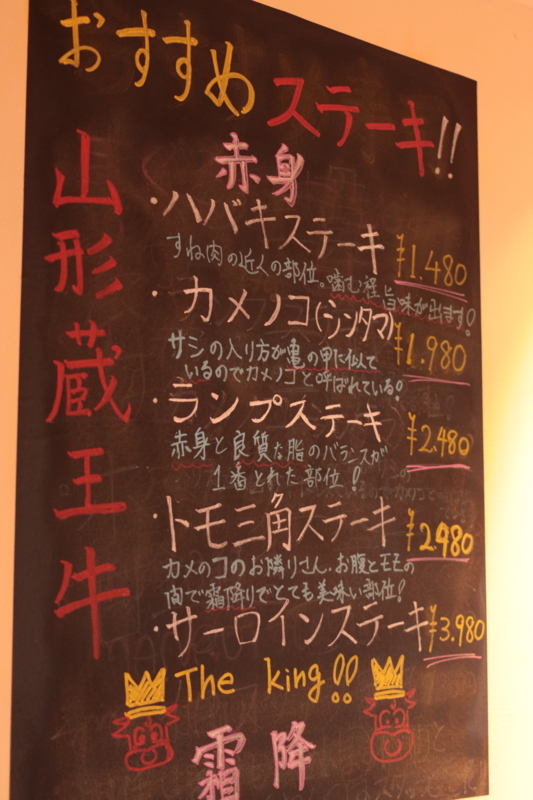 おすすめステーキ!!
山形蔵王牛
赤身
・ハバキステーキ ¥1.480
すね肉の近くの部位。噛む程旨味が出ます!
・カメノコ(シンタマ) ¥1.980
サシの入り方が亀の甲に似て
いるのでカメノコと呼ばれている!
・ランプステーキ ¥2.480
赤身と良質な脂のバランスが
1番とれた部位!
・トモ三角ステーキ ¥2.980
カメのコのお隣りさん.お腹とモモの
間で霜降りでとても美味い部位!
・サーロインステーキ ¥3.980
The king!!
霜降